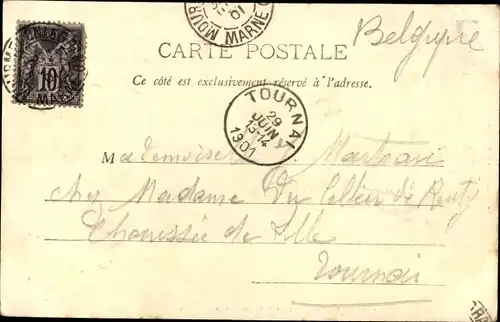 01
MOUR
MARNE
10
MARNE
CARTE POSTALE
Belgique
Ce côté est exclusivement réservé à l'adresse.
TOURNAI
29
JUIN
13-14
1901
Mademoiselle Marteau
chez Madame Du
Chaussée de Lille
Tournai